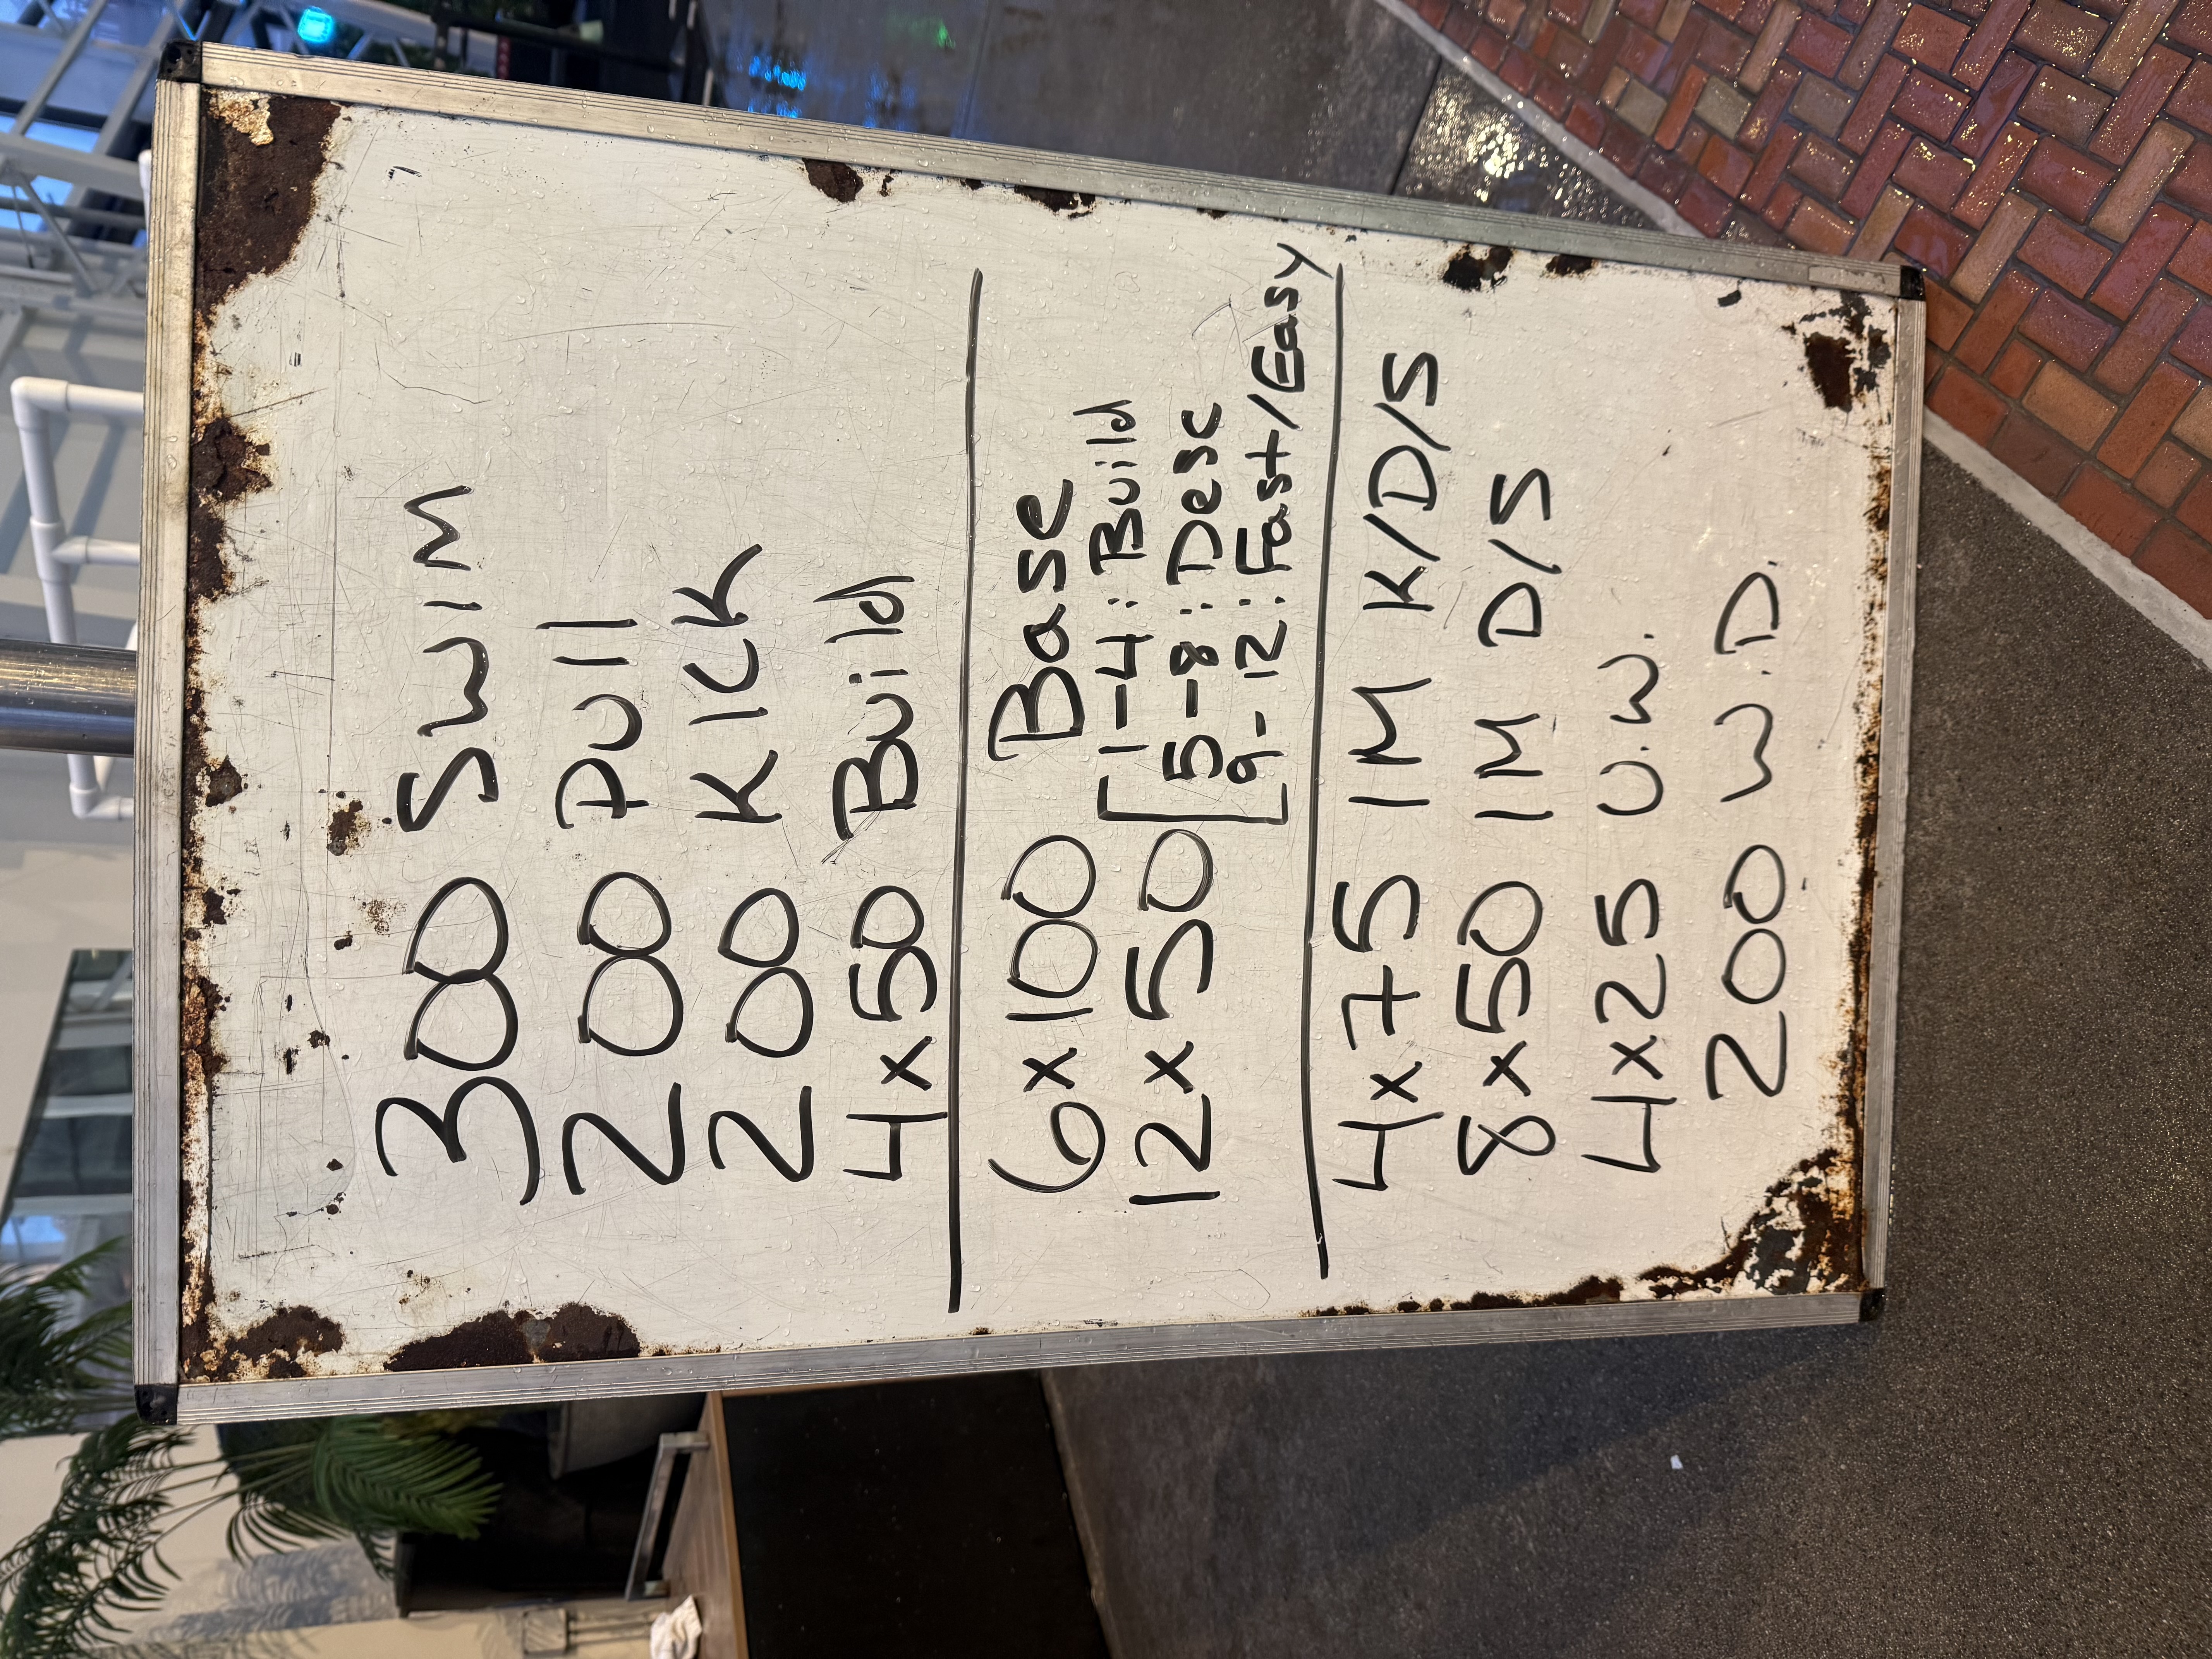 300 Swim
200 Pull
200 Kick
4x50 Build
6x100 Base
12x50 [1-4: Build
5-8: Desc
9-12: Fast/Easy
4x75 IM K/D/S
8x50 IM D/S
4x25 U.W.
200 W.D.